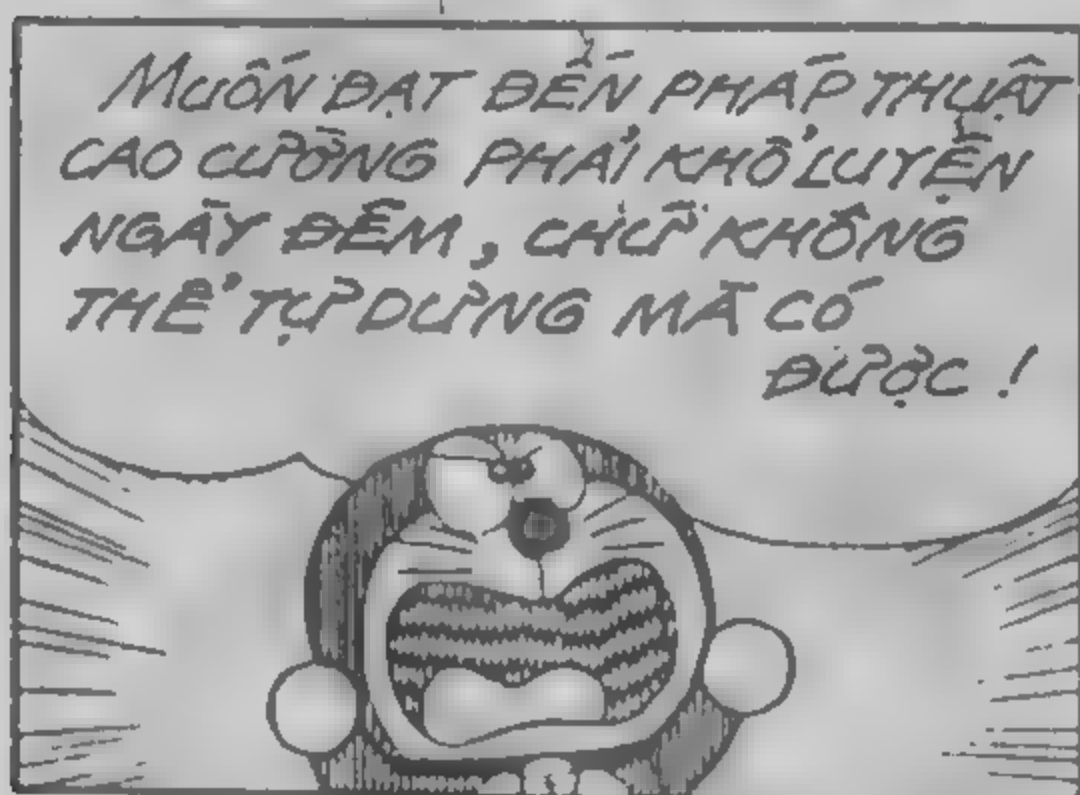 MUỐN ĐẠT ĐẾN PHÁP THUẬT
CAO CƯỜNG PHẢI KHỔ LUYỆN
NGÀY ĐÊM, CHỨ KHÔNG
THỂ TỰ DƯNG MÀ CÓ
ĐƯỢC !